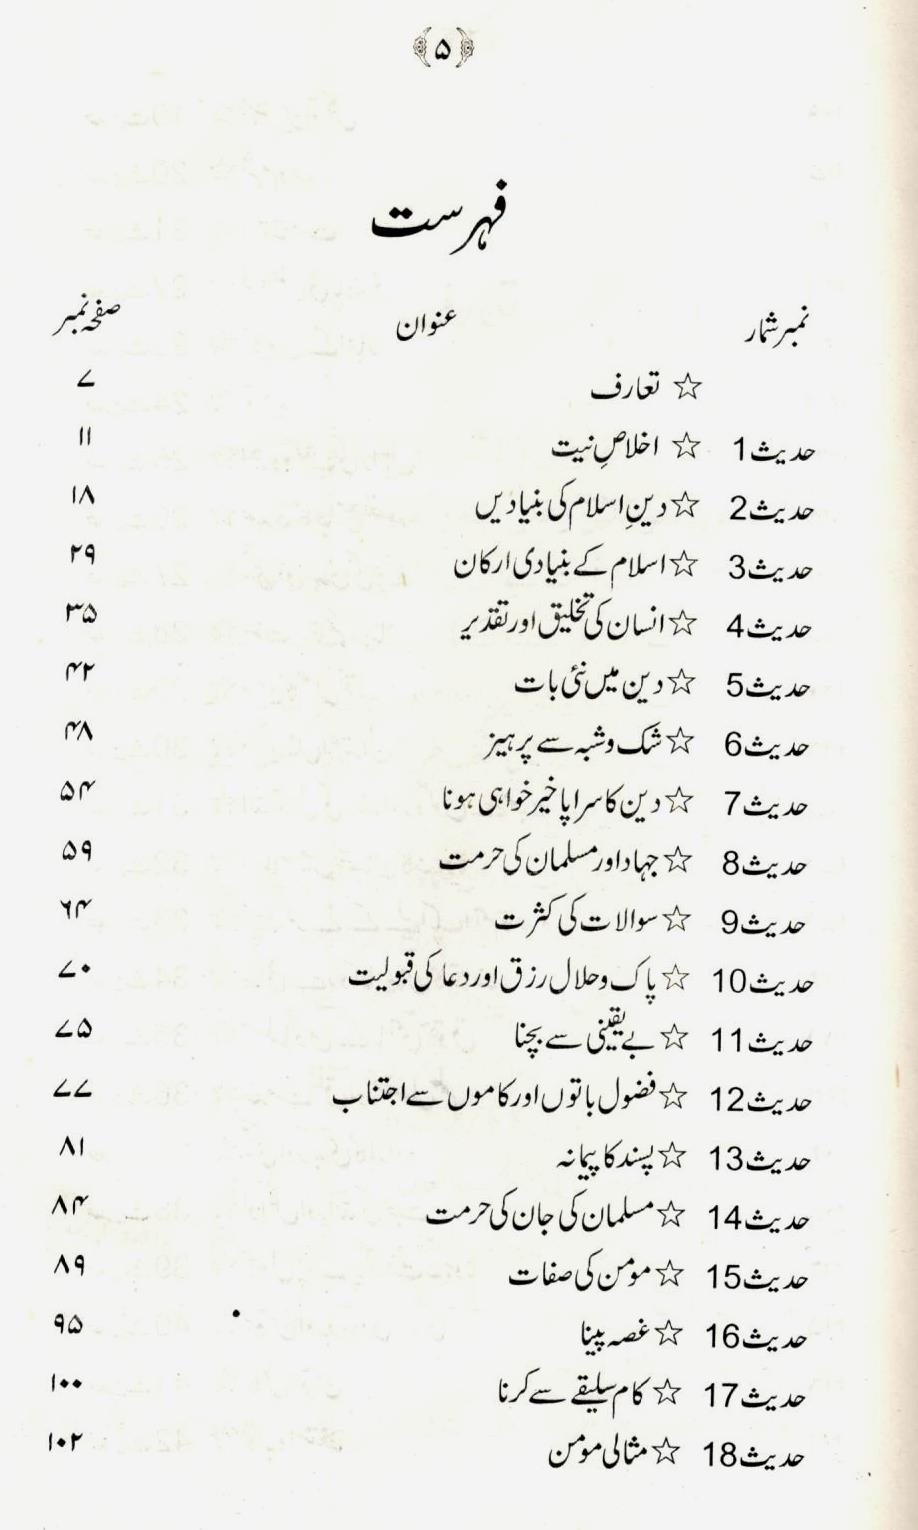 ﴿۵﴾
فہرست
نمبر شمار عنوان صفحہ نمبر
☆ تعارف ۷
حدیث 1 ☆ اخلاصِ نیت ۱۱
حدیث 2 ☆ دینِ اسلام کی بنیادیں ۱۸
حدیث 3 ☆ اسلام کے بنیادی ارکان ۲۹
حدیث 4 ☆ انسان کی تخلیق اور تقدیر ۳۵
حدیث 5 ☆ دین میں نئی بات ۴۲
حدیث 6 ☆ شک و شبہ سے پرہیز ۴۸
حدیث 7 ☆ دین کا سراپا خیر خواہی ہونا ۵۴
حدیث 8 ☆ جہاد اور مسلمان کی حرمت ۵۹
حدیث 9 ☆ سوالات کی کثرت ۶۴
حدیث 10 ☆ پاک و حلال رزق اور دعا کی قبولیت ۷۰
حدیث 11 ☆ بے یقینی سے بچنا ۷۵
حدیث 12 ☆ فضول باتوں اور کاموں سے اجتناب ۷۷
حدیث 13 ☆ پسند کا پیمانہ ۸۱
حدیث 14 ☆ مسلمان کی جان کی حرمت ۸۴
حدیث 15 ☆ مومن کی صفات ۸۹
حدیث 16 ☆ غصہ پینا ۹۵
حدیث 17 ☆ کام سلیقے سے کرنا ۱۰۰
حدیث 18 ☆ مثالی مومن ۱۰۲